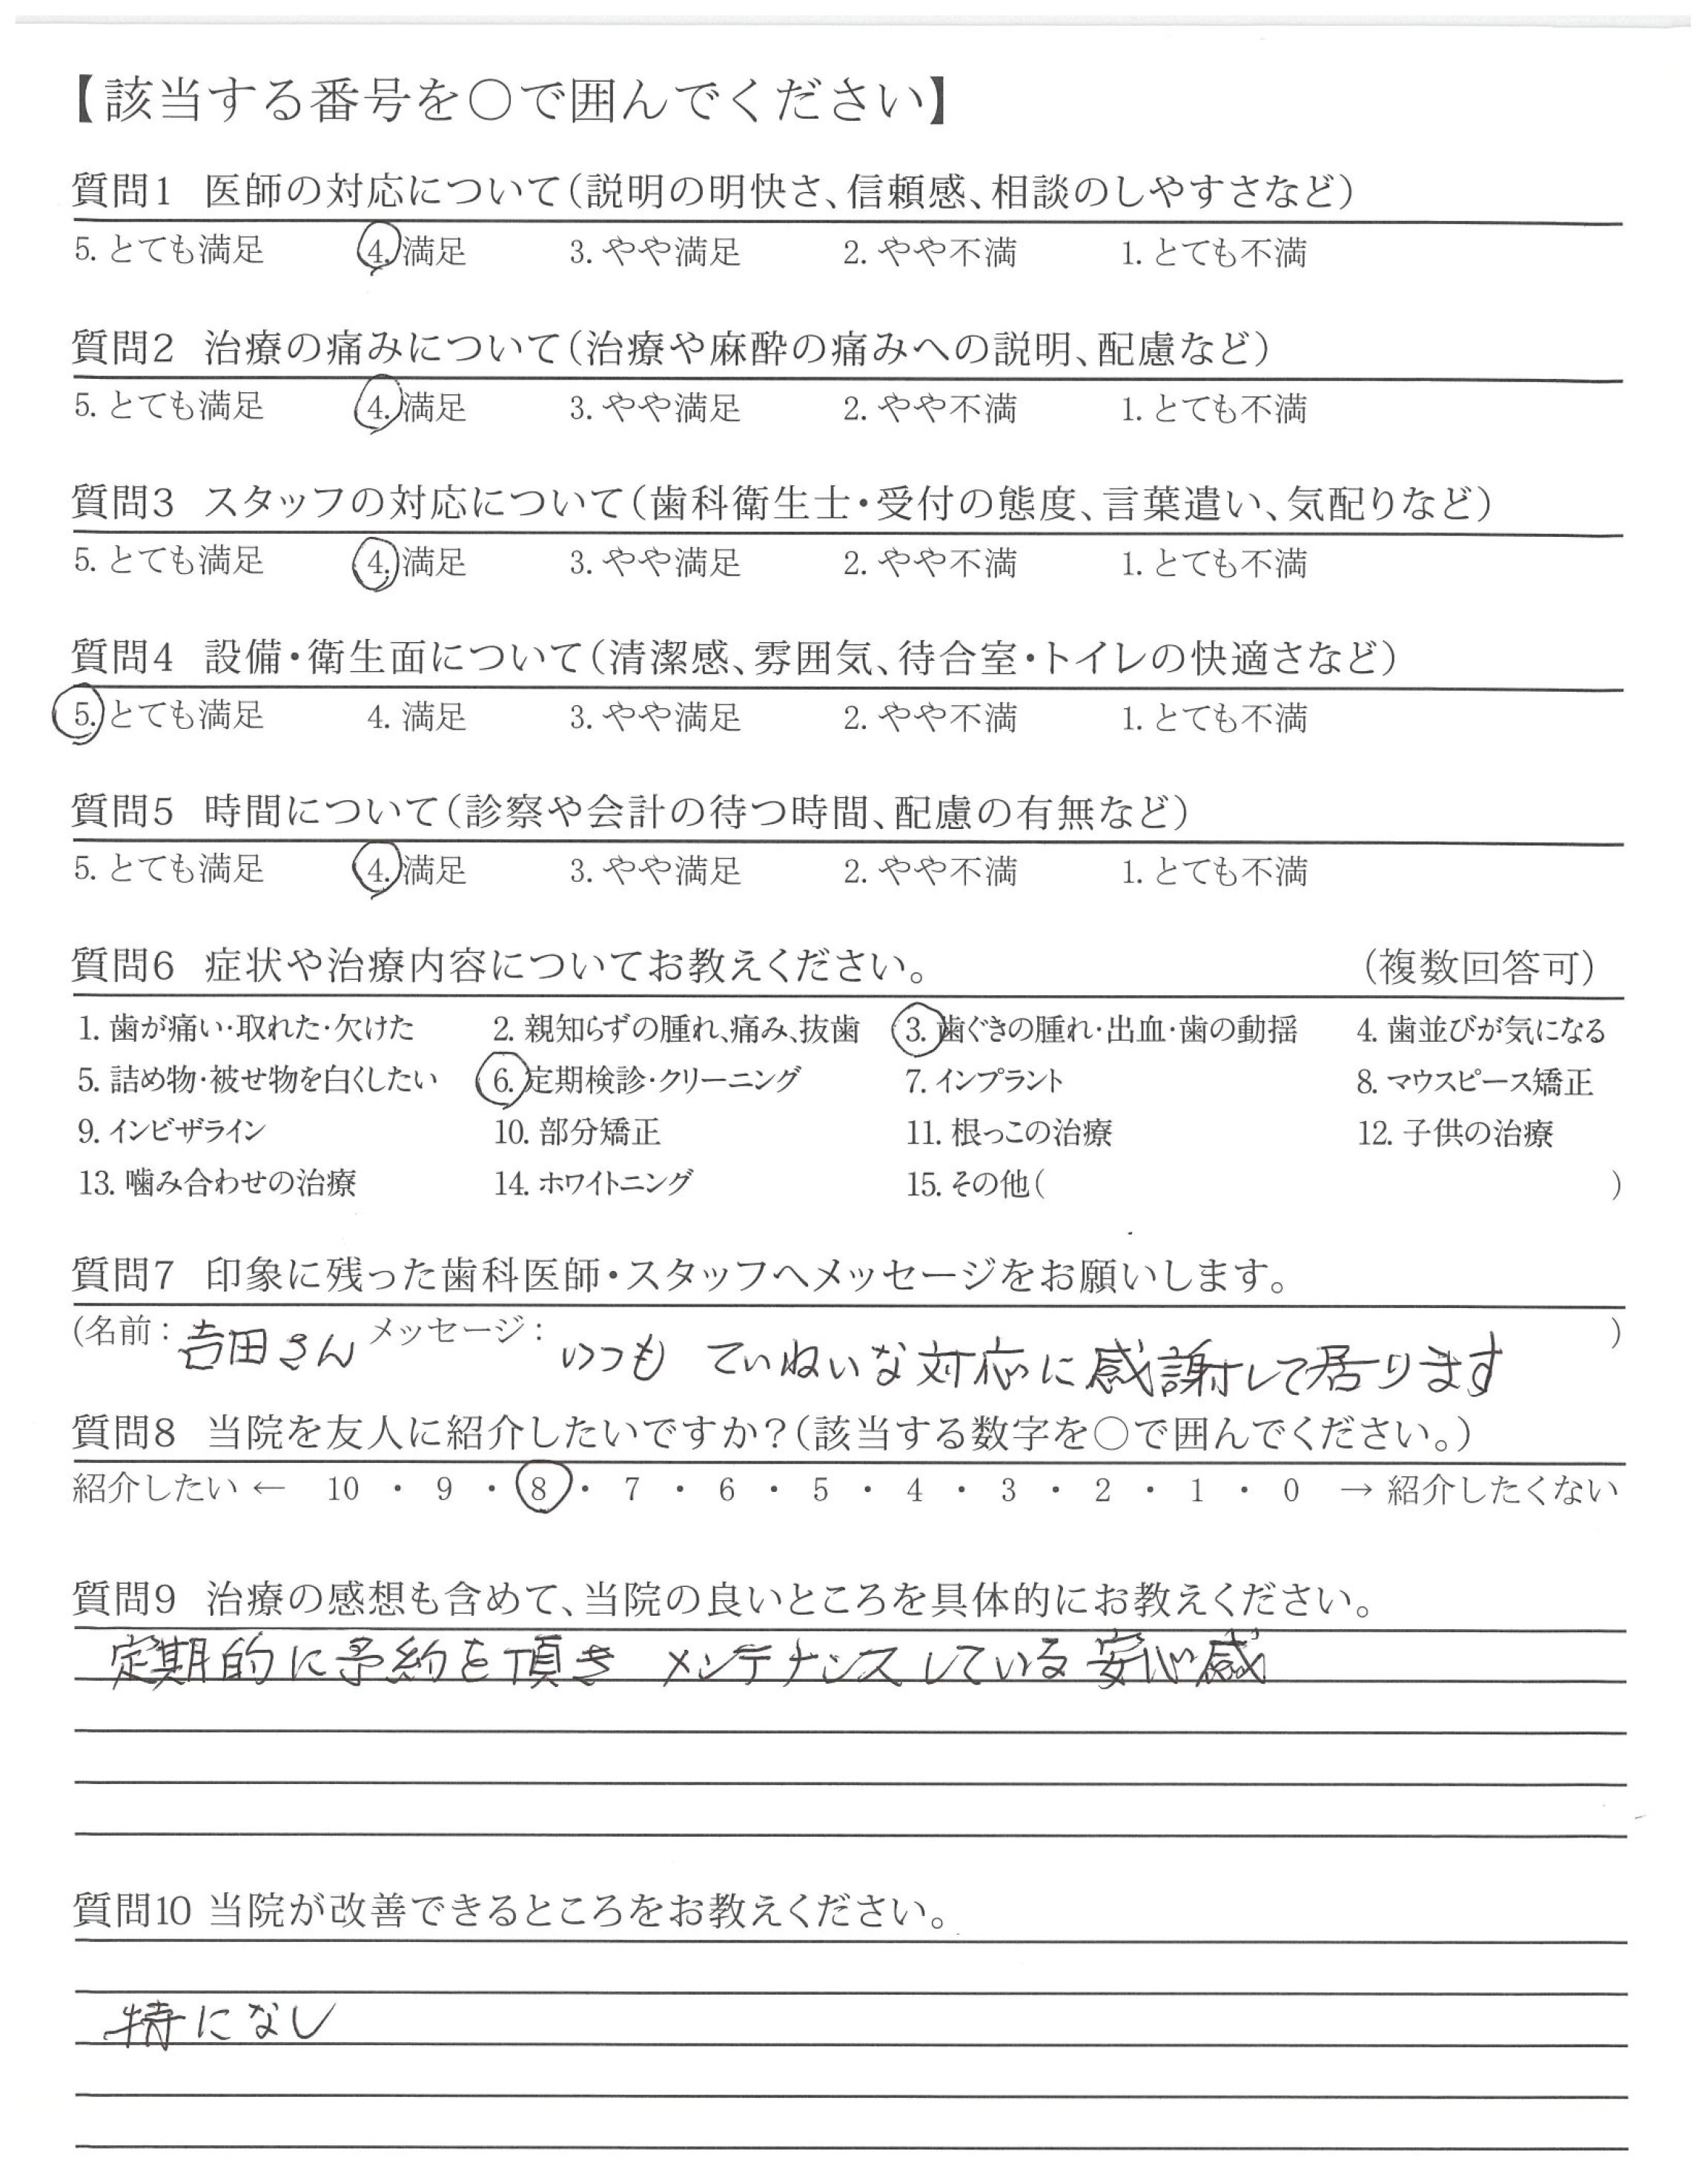 【該当する番号を○で囲んでください】
質問1 医師の対応について(説明の明快さ、信頼感、相談のしやすさなど)
5. とても満足 4. 満足 3. やや満足 2. やや不満 1. とても不満
質問2 治療の痛みについて(治療や麻酔の痛みへの説明、配慮など)
5. とても満足 4. 満足 3. やや満足 2. やや不満 1. とても不満
質問3 スタッフの対応について(歯科衛生士・受付の態度、言葉遣い、気配りなど)
5. とても満足 4. 満足 3. やや満足 2. やや不満 1. とても不満
質問4 設備・衛生面について(清潔感、雰囲気、待合室・トイレの快適さなど)
5. とても満足 4. 満足 3. やや満足 2. やや不満 1. とても不満
質問5 時間について(診察や会計の待つ時間、配慮の有無など)
5. とても満足 4. 満足 3. やや満足 2. やや不満 1. とても不満
質問6 症状や治療内容についてお教えください。 (複数回答可)
1. 歯が痛い・取れた・欠けた 2. 親知らずの腫れ、痛み、抜歯 3. 歯ぐきの腫れ・出血・歯の動揺 4. 歯並びが気になる
5. 詰め物・被せ物を白くしたい 6. 定期検診・クリーニング 7. インプラント 8. マウスピース矯正
9. インビザライン 10. 部分矯正 11. 根っこの治療 12. 子供の治療
13. 噛み合わせの治療 14. ホワイトニング 15. その他( )
質問7 印象に残った歯科医師・スタッフへメッセージをお願いします。
(名前: 吉田さん メッセージ: いつも ていねいな対応に感謝して居ります )
質問8 当院を友人に紹介したいですか?(該当する数字を○で囲んでください。)
紹介したい ← 10 ・ 9 ・ 8 ・ 7 ・ 6 ・ 5 ・ 4 ・ 3 ・ 2 ・ 1 ・ 0 → 紹介したくない
質問9 治療の感想も含めて、当院の良いところを具体的にお教えください。
定期的に予約を頂き メンテナンスしている安心感
質問10 当院が改善できるところをお教えください。
特になし